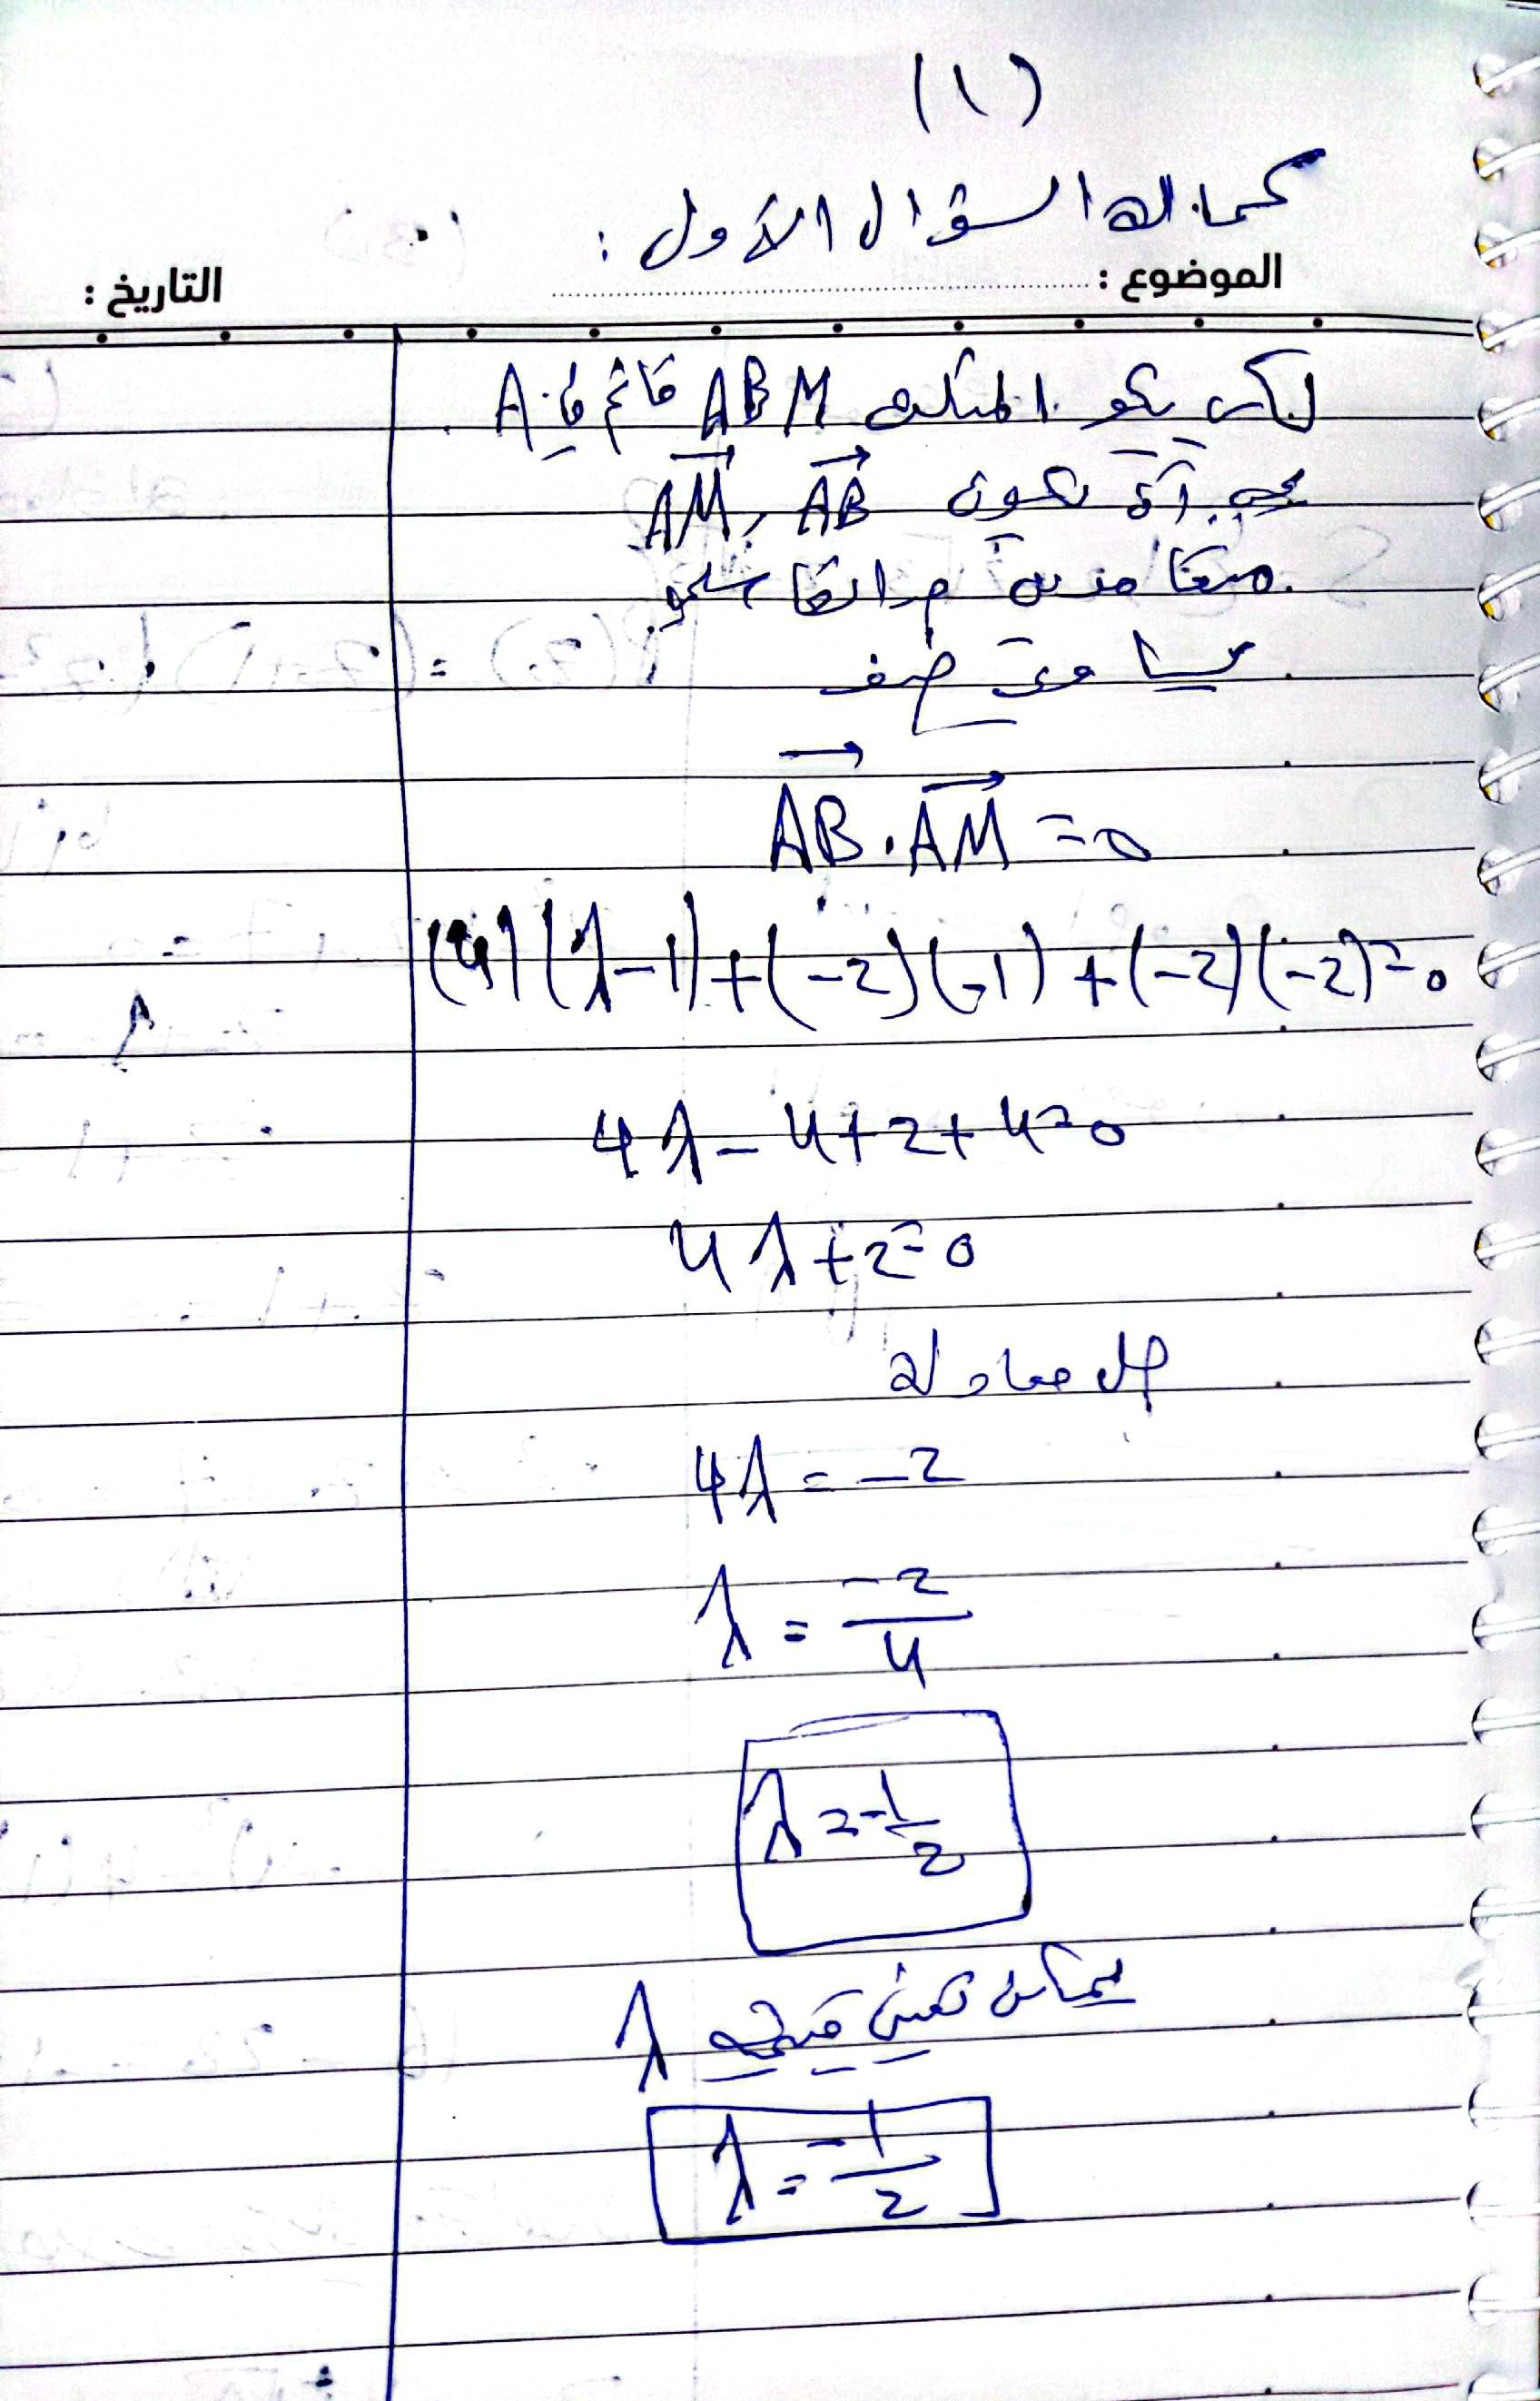 (١)
كماله السؤال الأول :
الموضوع :
التاريخ :
لكي يكو المثلث ABM قائم في A
يجب أن يكون AB , AM
متعامدين جدائهما السلمي
يساوي صفر
AB . AM = 0
(4)(λ-1)+(-2)(-1)+(-2)(-2)=0
4λ-4+2+4=0
4λ+2=0
حل معادلة
4λ = -2
λ = -2/4
λ = -1/2
يمكن تعين قيمة λ
λ = -1/2